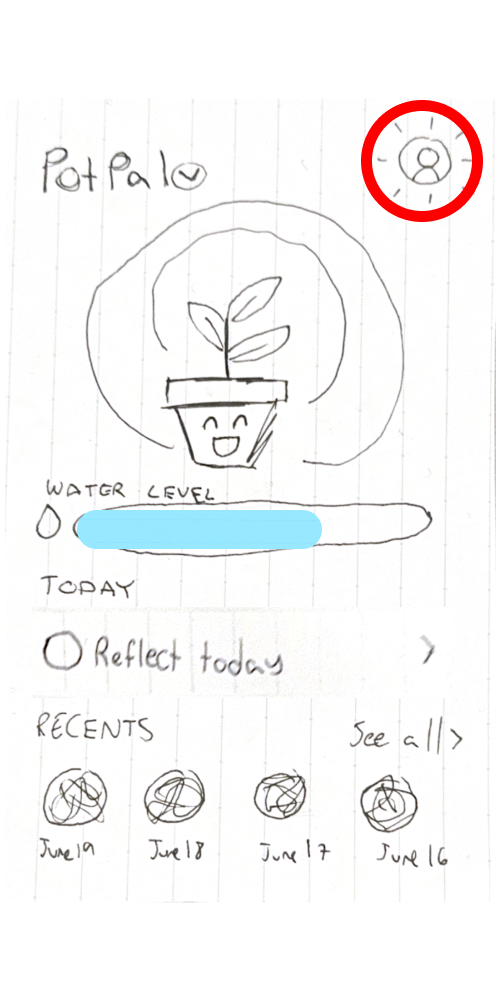 PotPal
WATER LEVEL
TODAY
Reflect today
RECENTS
See all
June 19
June 18
June 17
June 16